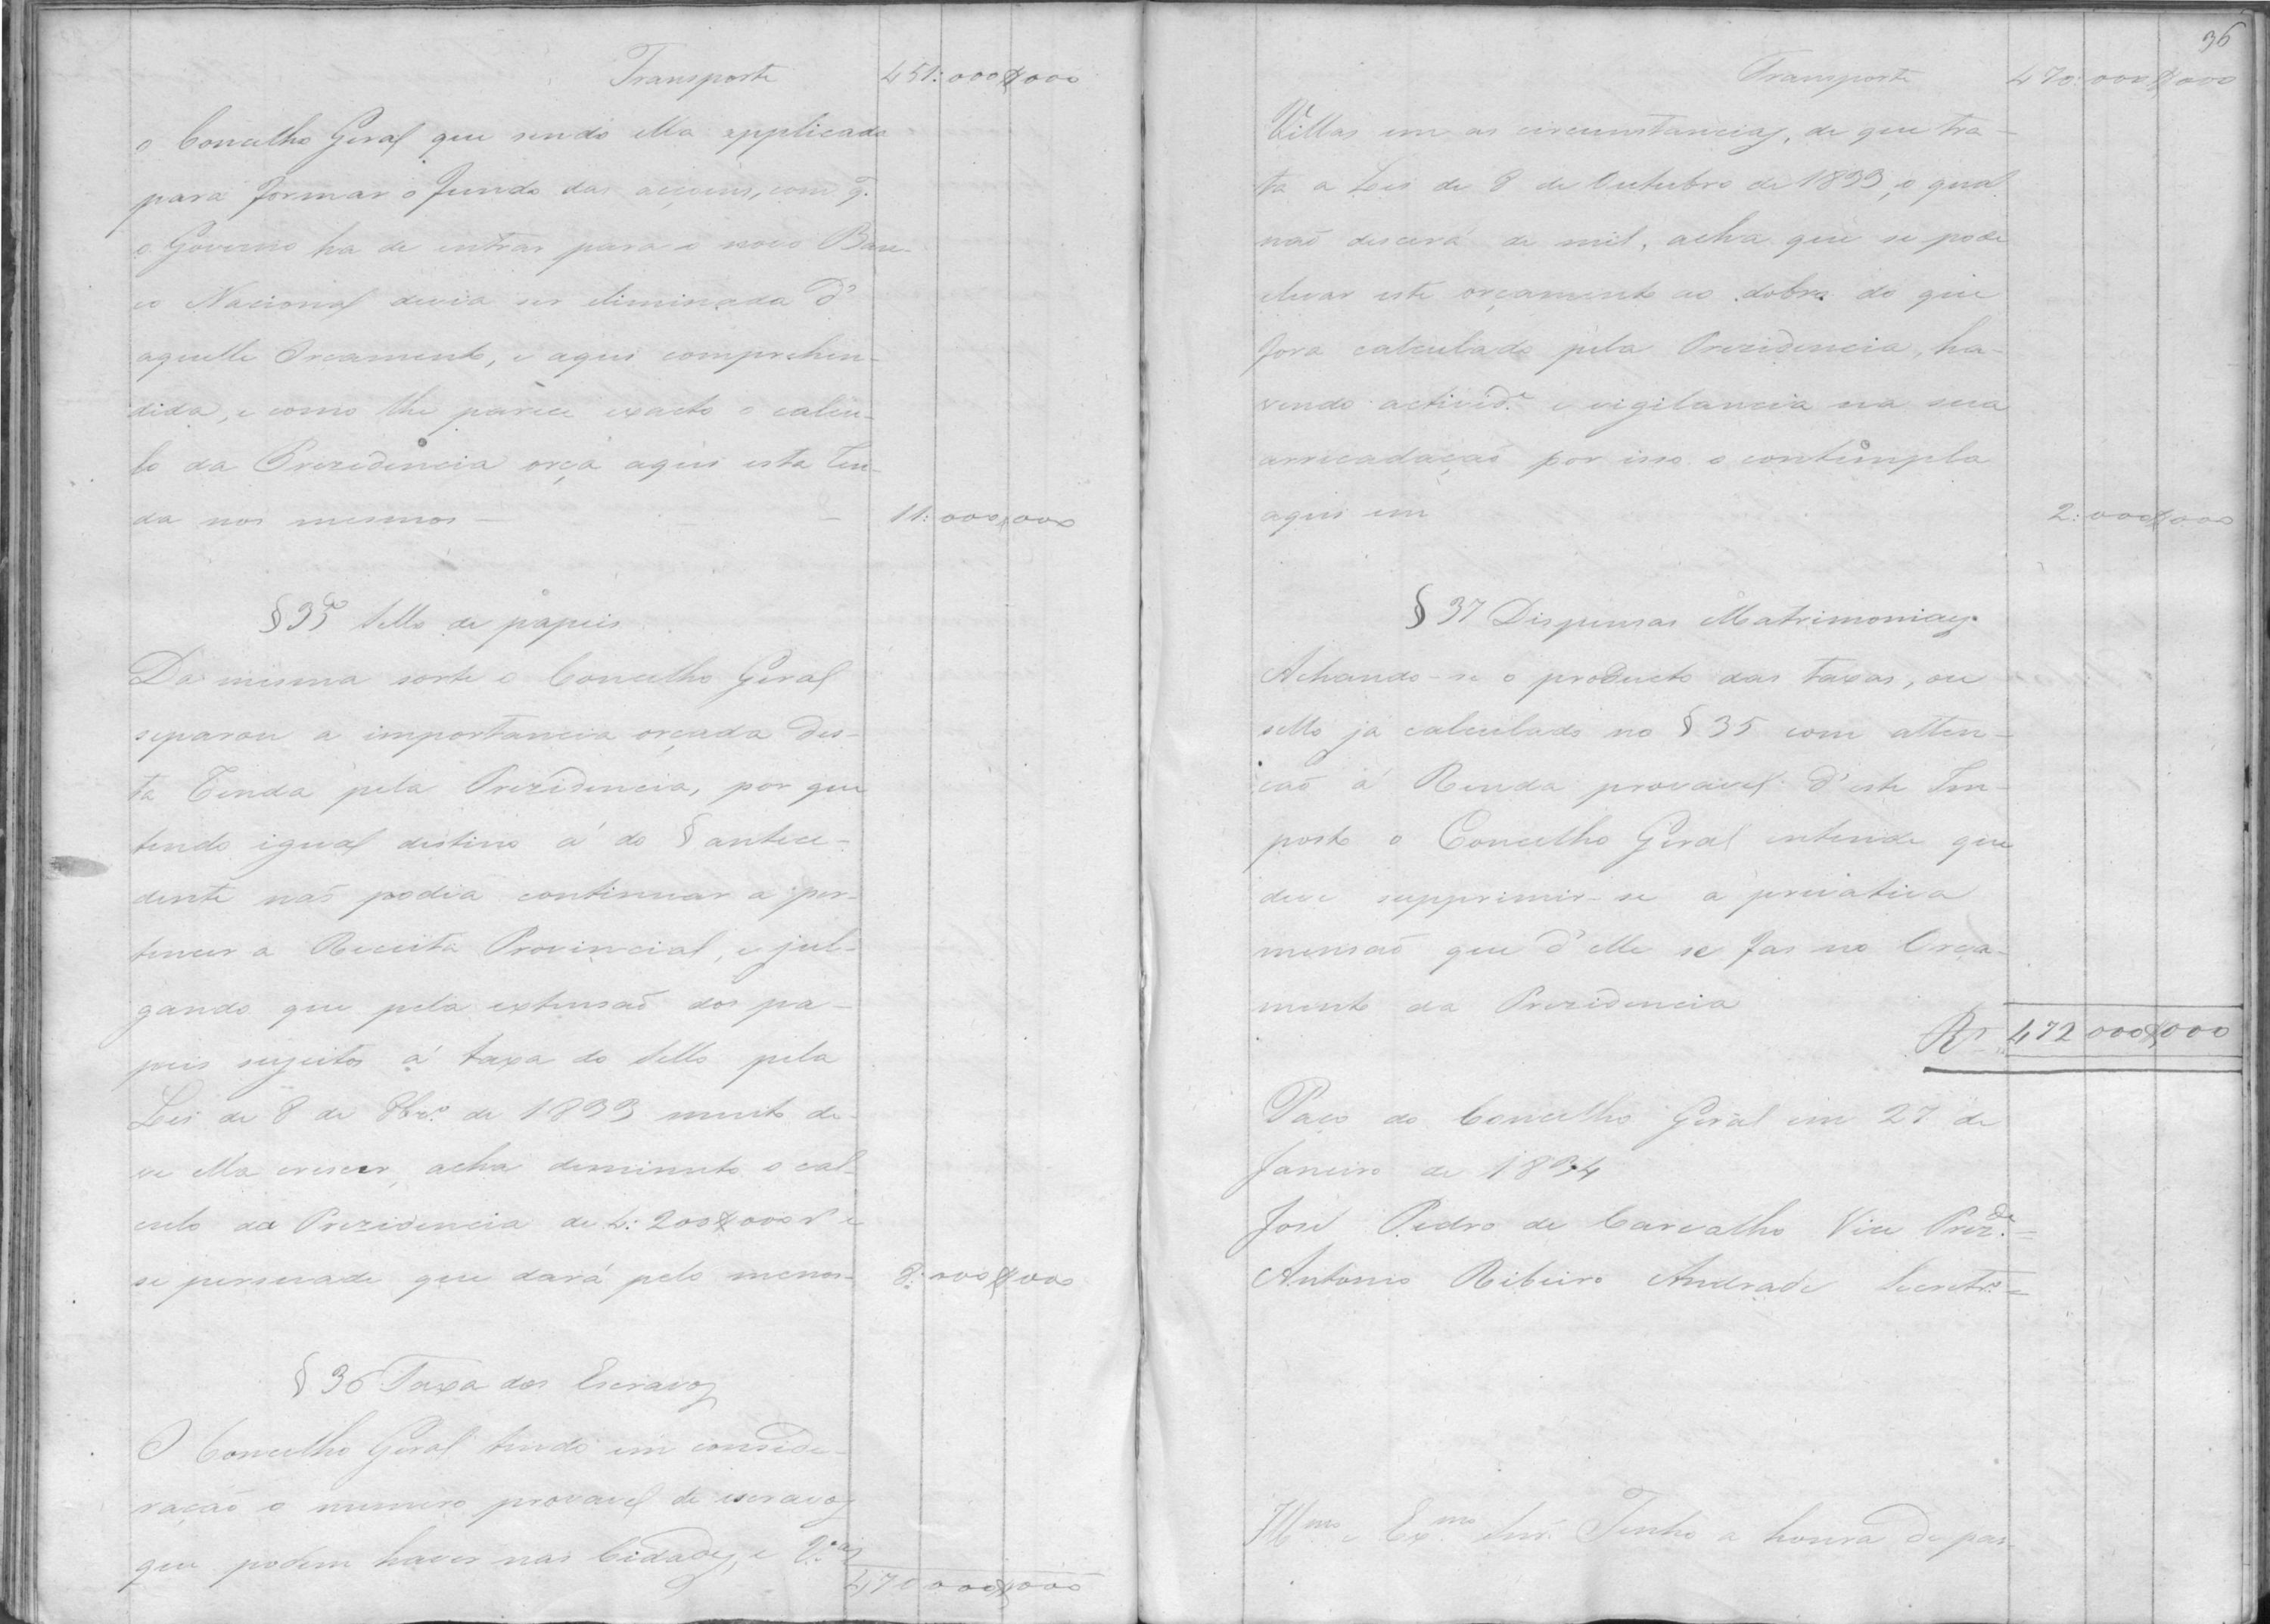 Transporte 451:000$000
o Concelho Geral que sendo ella applicada
para formar o fundo das acçoens, com q.
o Governo ha de entrar para o novo Ban-
co Nacional devia ser eliminada d'
aquelle Orçamento, e aqui comprehen-
dida, e como lhe parece exacto o calcu-
lo da Prezidencia orça aqui esta Ren-
da nos mesmos — — 11:000$000
§ 35 Sello de papeis
Da mesma sorte o Concelho Geral
separou a importancia orçada des-
ta Renda pela Prezidencia, por que
tendo igual destino á do § antece-
dente naõ podia continuar a per-
tencer a Receita Provincial, e jul-
gando que pela extensaõ dos pa-
peis sugeitos á taxa do Sello pela
Lei de 8 de 8br.º de 1833 muito de-
ve ella crescer, acha deminuto o cal-
culo da Prezidencia de 4:200$000 r.s e
se persuade que dará pelo menos — 8:000$000
§ 36 Taxa dos Escravos
O Concelho Geral tendo em conside-
raçaõ o numero provavel de escravos
que podem haver nas Cidades, e V.as
470:000$000
36
Transporte 470:000$000
Villas em as circunstancias, de que tra-
ta a Lei de 8 de Outubro de 1833, o qual
naõ descerá de mil, acha que se pode
elevar este orçamento ao dobro do que
fora calculado pela Prezidencia, ha-
vendo activid.e e vigilancia na sua
arrecadaçaõ por isso o contempla
aqui em 2:000$000
§ 37 Dispensas Matrimoniaes
Achando-se o producto das taxas, ou
sello ja calculado no § 35 com atten-
çaõ á Renda provavel d'este Im-
posto o Concelho Geral entende que
deve supprimir-se a privativa
mensaõ que d'elle se fas no Orça-
mento da Prezidencia
R.s 472:000$000
Paço do Concelho Geral em 27 de
Janeiro de 1834
José Pedro de Carvalho Vice Prez.de =
Antonio Ribeiro Andrade Secretr.º =
Ill.mo e Ex.mo Snr. Tenho a honra de pas